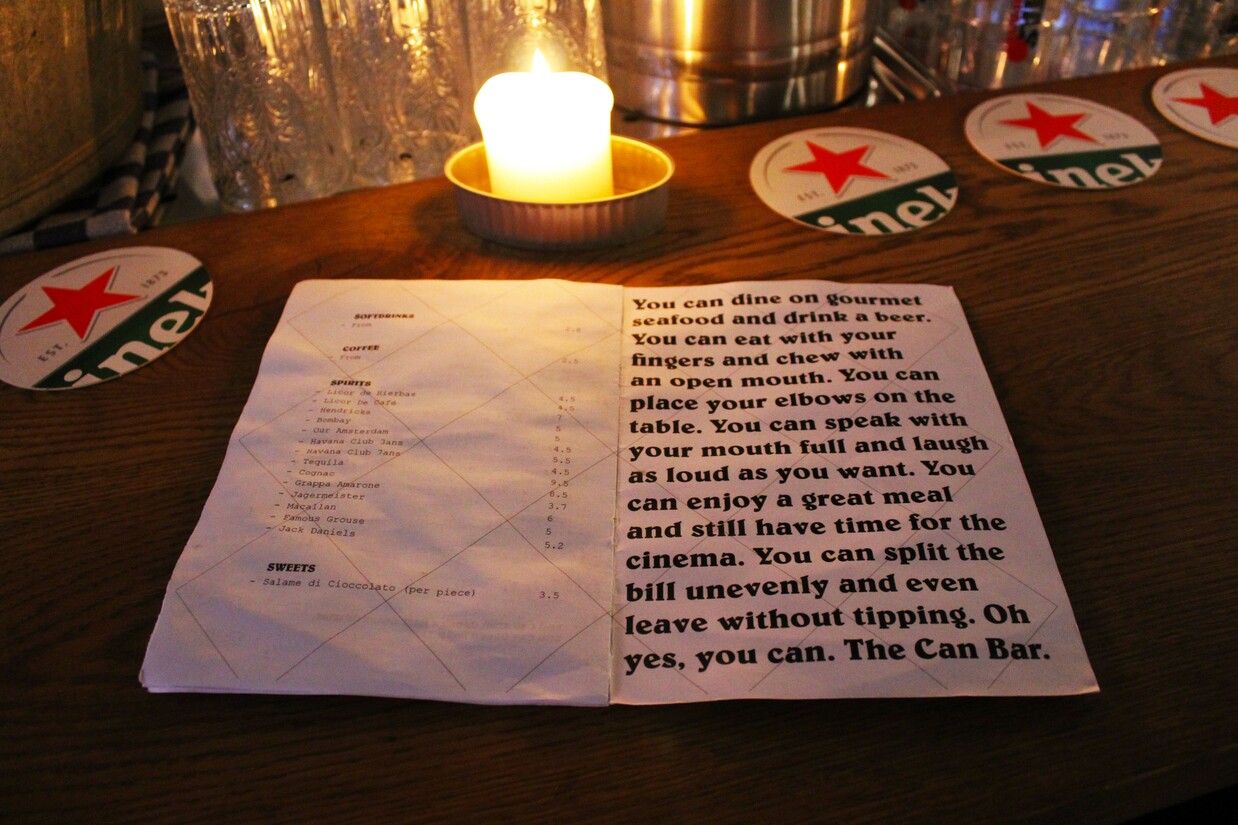 EST. 1873
inek
EST. 1873
inek
EST. 1873
inek
SOFTDRINKS
- From
COFFEE
- From 2.5
SPIRITS
- Licor de Hierbas 4.5
- Licor De Café 4.5
- Hendricks 7
- Bombay 5
- Our Amsterdam 5
- Havana Club 3ans 4.5
- Havana Club 7ans 5.5
- Tequila 4.5
- Cognac 9.5
- Grappa Amarone 8.5
- Jagermeister 3.7
- Macallan 6
- Famous Grouse 5
- Jack Daniels 5.2
SWEETS
- Salame di Cioccolato (per piece) 3.5
You can dine on gourmet
seafood and drink a beer.
You can eat with your
fingers and chew with
an open mouth. You can
place your elbows on the
table. You can speak with
your mouth full and laugh
as loud as you want. You
can enjoy a great meal
and still have time for the
cinema. You can split the
bill unevenly and even
leave without tipping. Oh
yes, you can. The Can Bar.